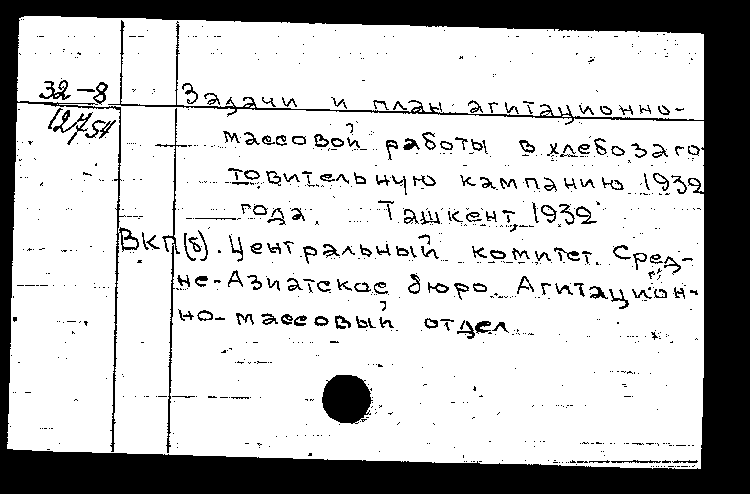 32-8
12754
Задачи и план агитационно-
массовой работы в хлебозаго
товительную кампанию 1932
года. Ташкент, 1932
ВКП(б). Центральный комитет. Сред-
не-Азиатское бюро. Агитацион-
но-массовый отдел